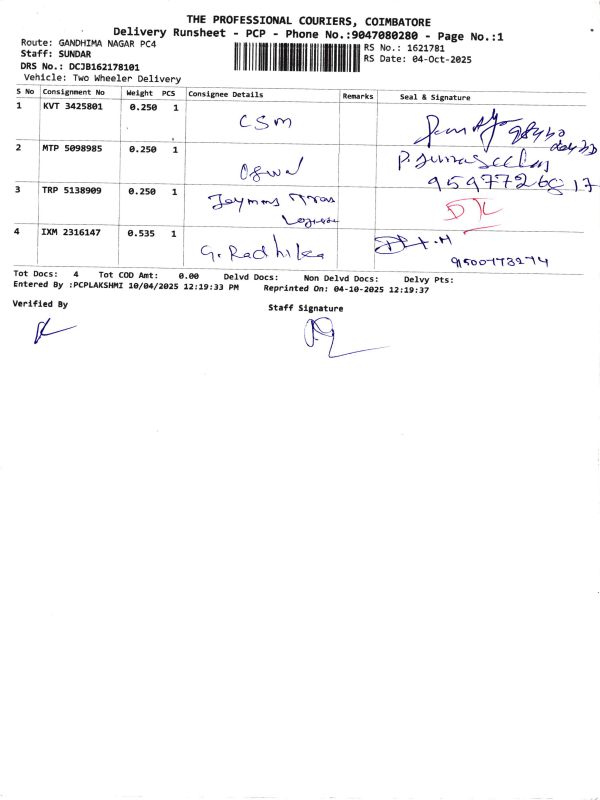 THE PROFESSIONAL COURIERS, COIMBATORE
Delivery Runsheet - PCP - Phone No.:9047080280 - Page No.:1
Route: GANDHIMA NAGAR PC4
RS No.: 1621781
Staff: SUNDAR
RS Date: 04-Oct-2025
DRS No.: DCJB162178101
Vehicle: Two Wheeler Delivery
S No Consignment No Weight PCS Consignee Details Remarks Seal & Signature
1 KVT 3425801 0.250 1 CSM
2 MTP 5098985 0.250 1
9597726817
3 TRP 5138909 0.250 1
4 IXM 2316147 0.535 1 G. Radhika
9500773274
Tot Docs: 4 Tot COD Amt: 0.00 Delvd Docs: Non Delvd Docs: Delvy Pts:
Entered By :PCPLAKSHMI 10/04/2025 12:19:33 PM Reprinted On: 04-10-2025 12:19:37
Verified By
Staff Signature